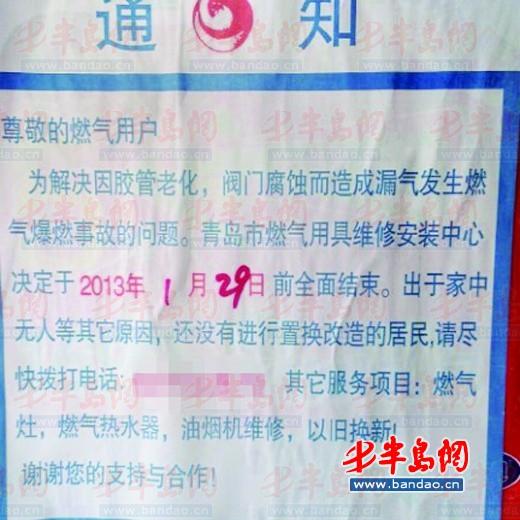 通知
尊敬的燃气用户
为解决因胶管老化，阀门腐蚀而造成漏气发生燃
气爆燃事故的问题。青岛市燃气用具维修安装中心
决定于2013年1月29日前全面结束。出于家中
无人等其它原因，还没有进行置换改造的居民,请尽
快拨打电话: 其它服务项目：燃气
灶，燃气热水器，油烟机维修，以旧换新!
谢谢您的支持与合作!
半岛网
www.bandao.cn